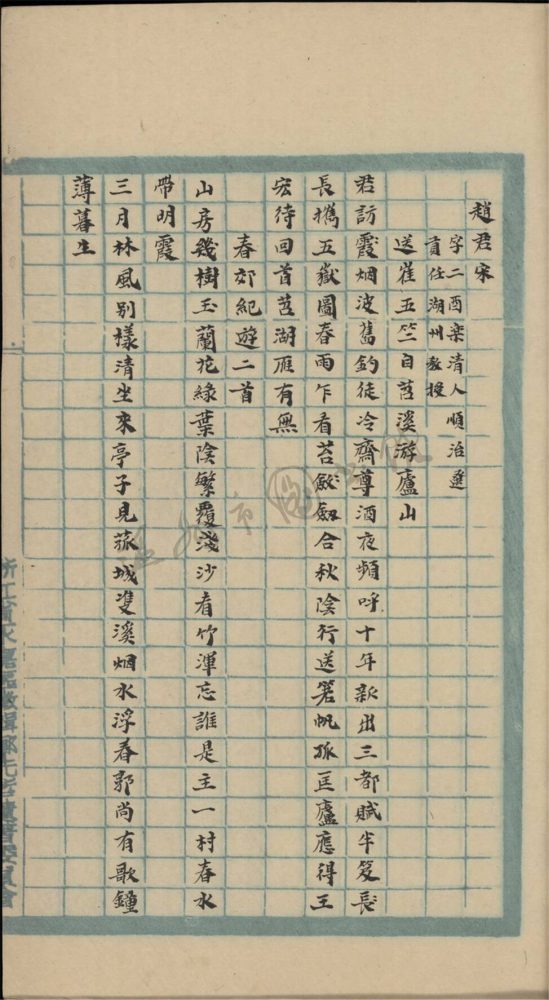 趙君宋
字二酉樂清人順治選
貢任湖州教授
送崔五竺自苕溪游廬山
君訪霞烟波舊釣徒冷齋尊酒夜頻呼十年新出三都賦半笈長
長攜五嶽圖春雨乍看苔劔合秋陰行送箬帆孤匡廬應得王
宏待回首苕湖雁有無
春郊紀遊二首
山房幾樹玉蘭花綠葉陰繁覆淺沙看竹渾忘誰是主一村春水
帶明霞
三月林風別樣清坐來亭子見菰城雙溪烟水浮春郭尚有歌鐘
薄暮生
浙江省永嘉區徵輯鄉先哲遺著委員會